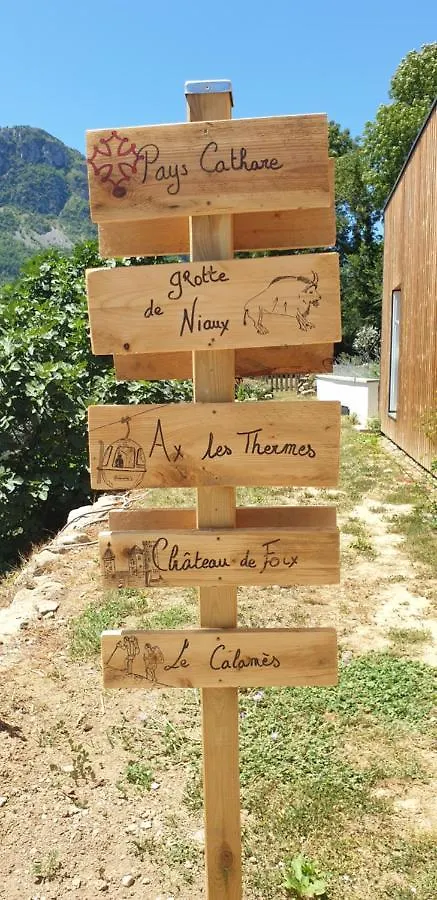 Pays Cathare
grotte
de Niaux
Ax les Thermes
Château de Foix
Le Calamès